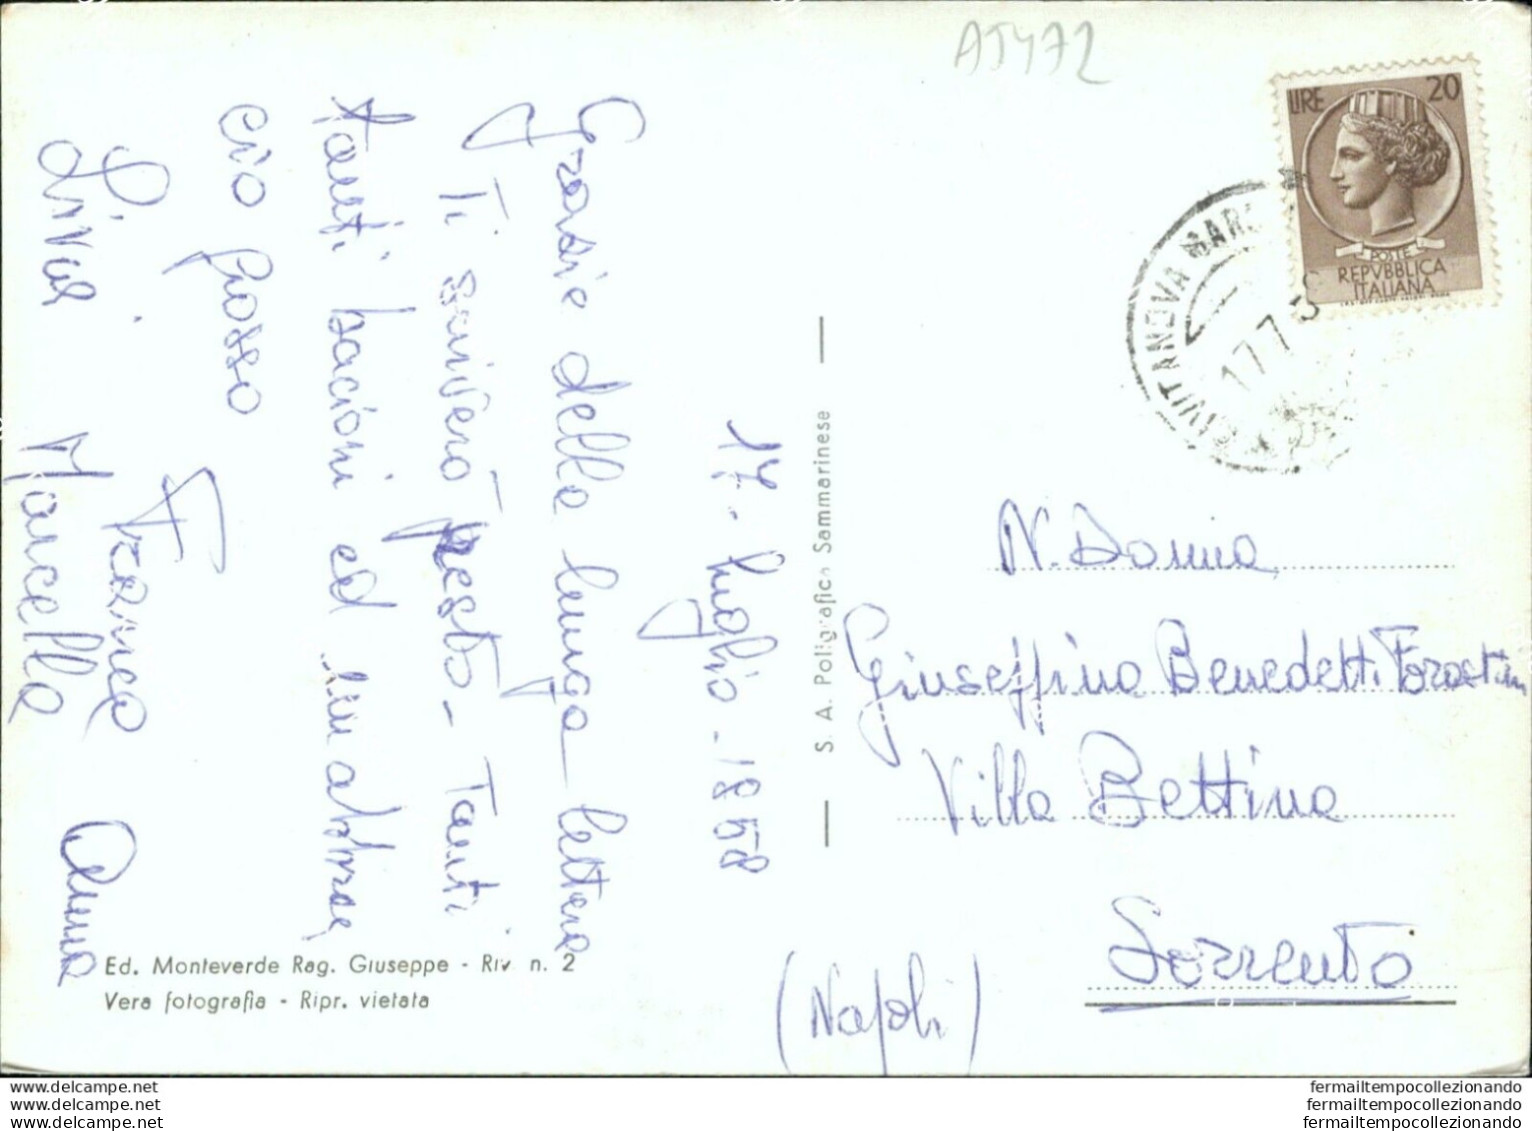 AJ472
LIRE 20
POSTE
REPVBBLICA
ITALIANA
CIVITANOVA MAR
17.7.5
17-luglio-1958
Grazie della lunga lettera
Ti scriverò presto - Tanti
tanti bacioni ed un abbrac
cio grosso
Franca Anna
Livia Marcella
S. A. Poligrafico Sammarinese
N. Donna
Giuseppina Benedetti Forastieri
Villa Bettina
Sorrento
(Napoli)
Ed. Monteverde Rag. Giuseppe - Riv. n. 2
Vera fotografia - Ripr. vietata
delcampe.net
delcampe.net
delcampe.net
fermailtempocollezionando
fermailtempocollezionando
fermailtempocollezionando